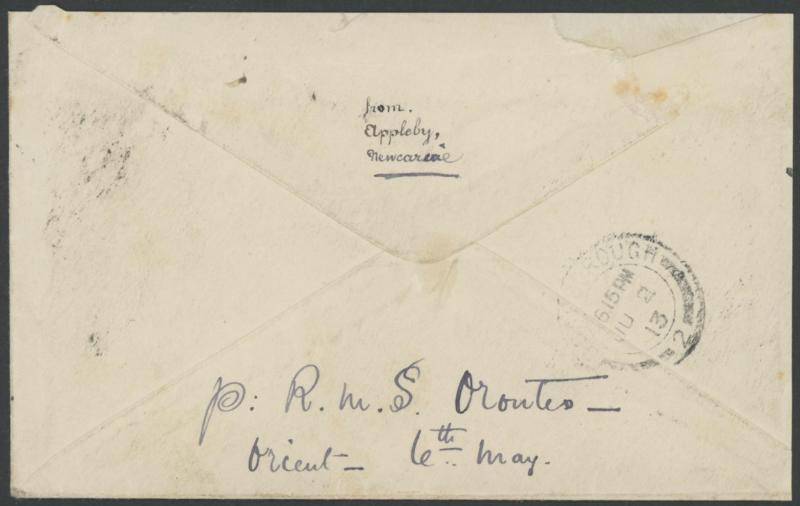 from.
Appleby,
ROUGH
6.15 PM
JU 2
13
2
p: R.M.S. Orontes —
Orient — 6th May.